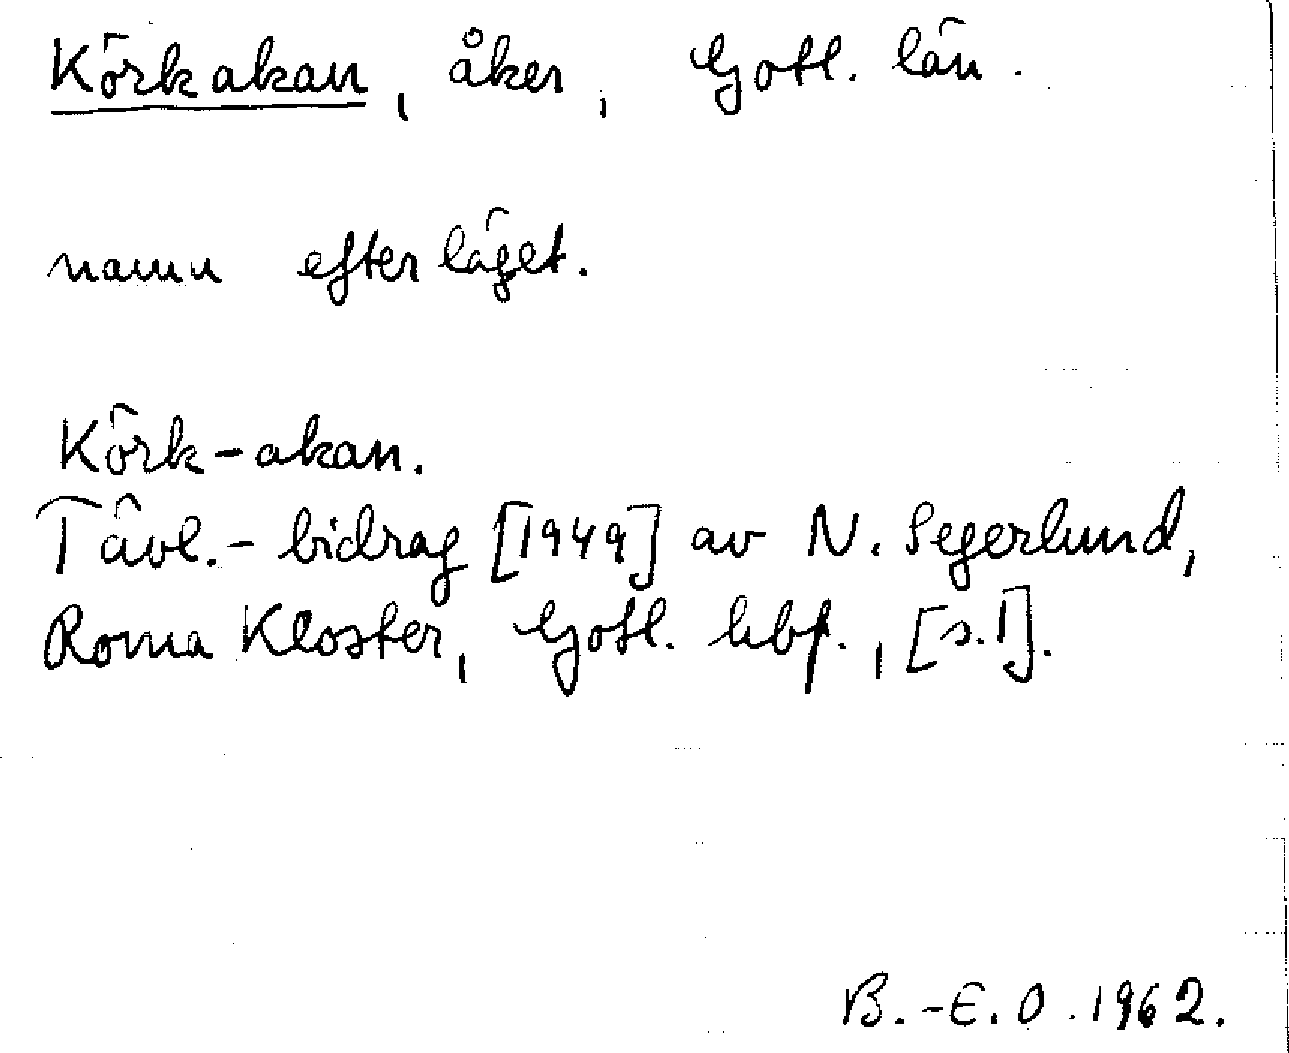 Körkakan, åker, Gotl. län.
namn efter läget.
Körk-akan.
Tävl.-bidrag [1949] av N. Segerlund,
Roma Kloster, Gotl. hbf., [s.1].
B.-E. O. 1962.